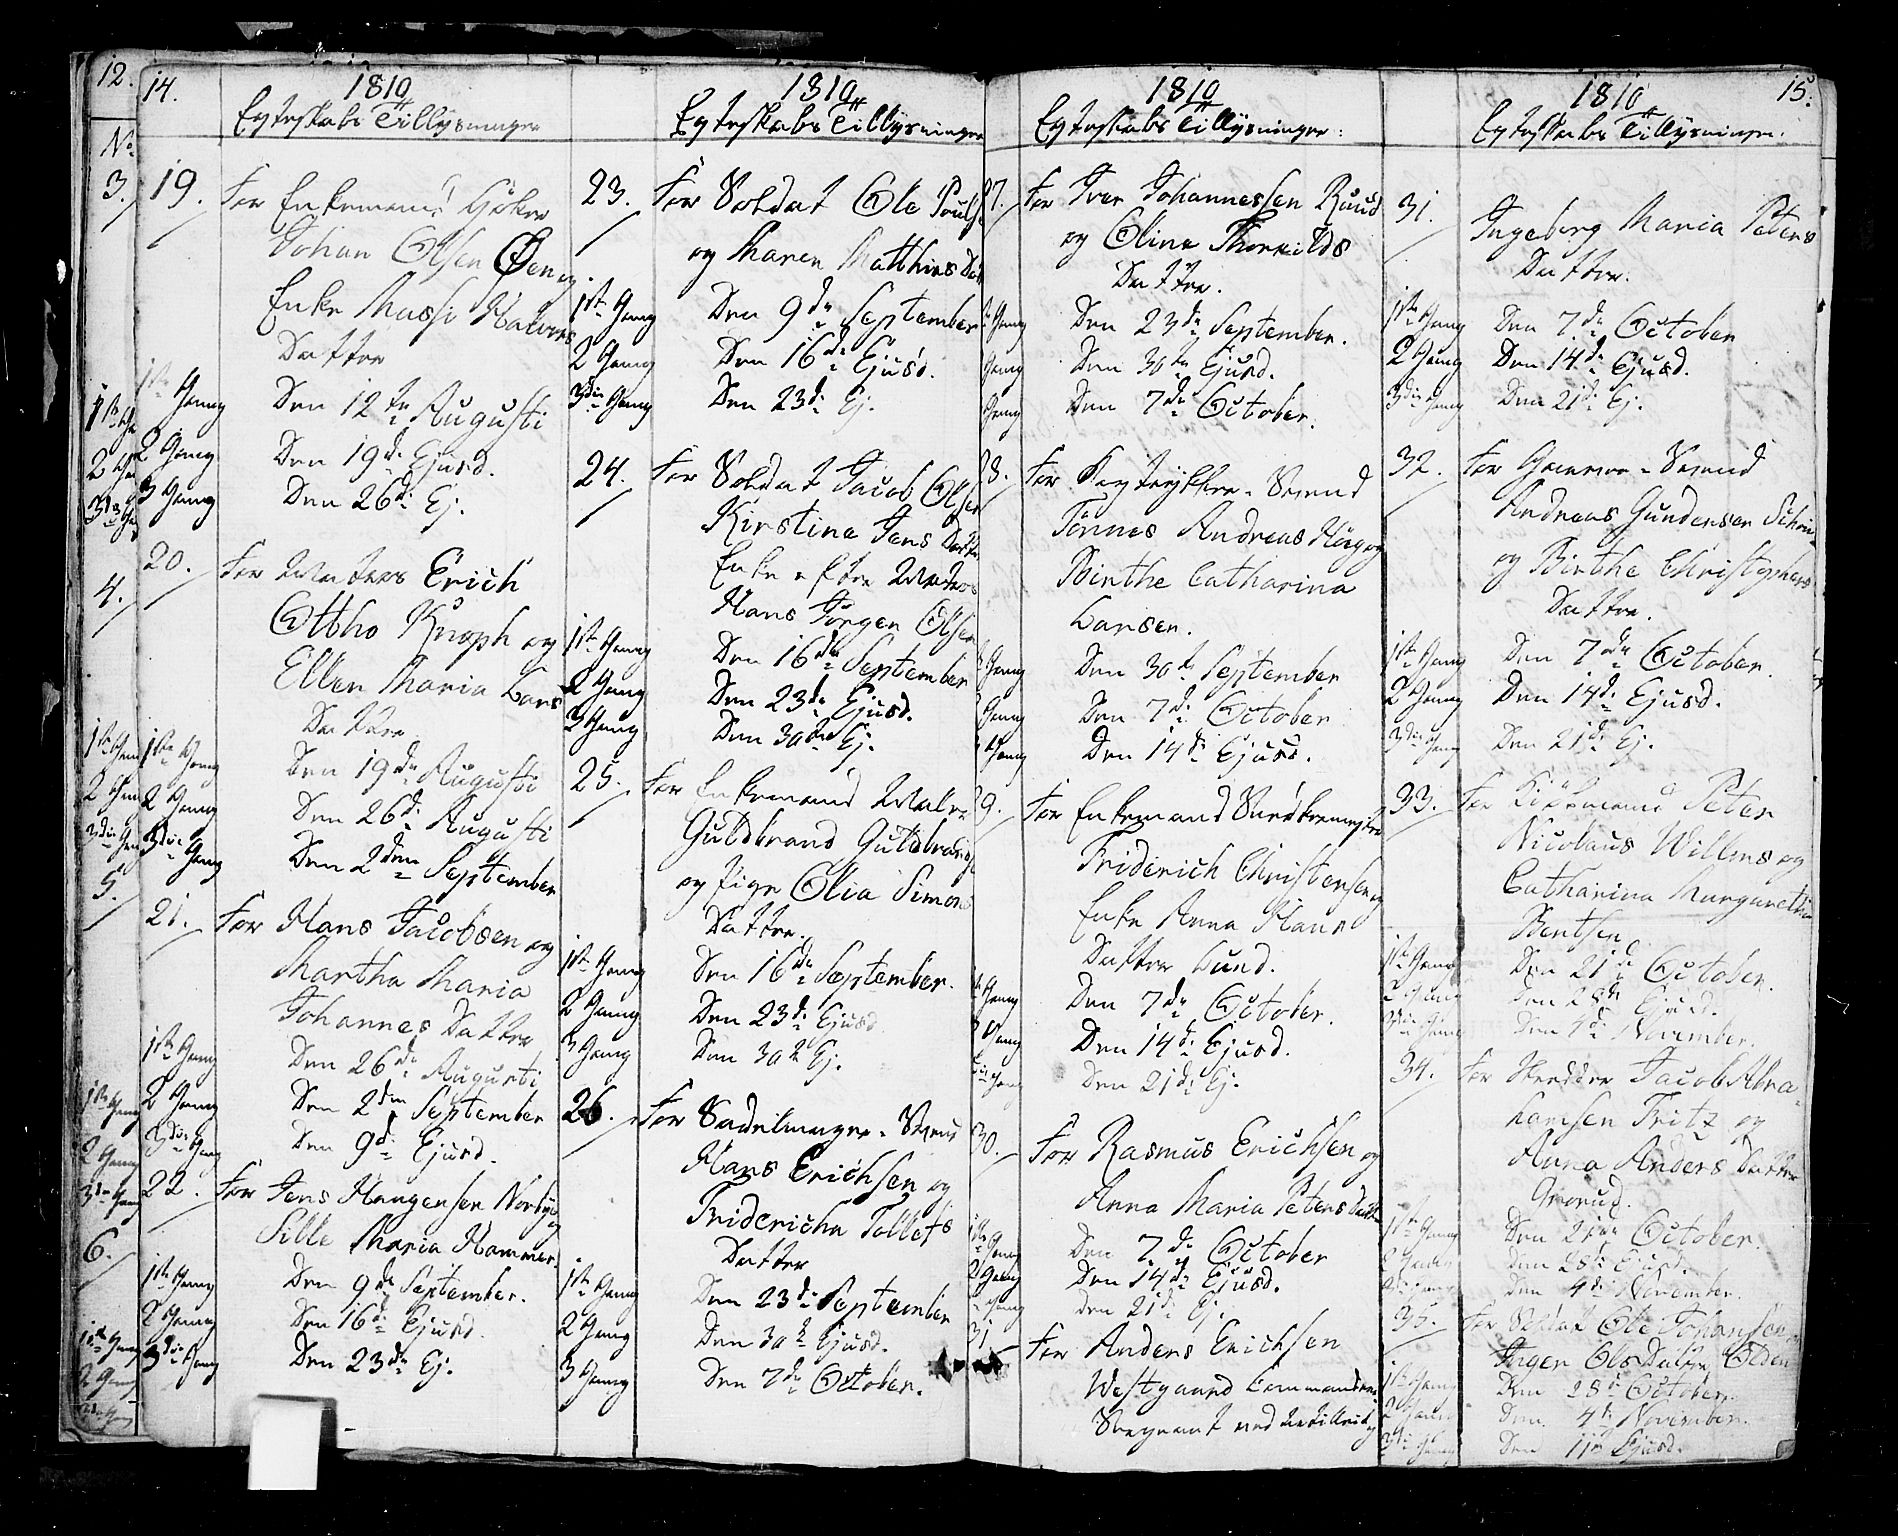 12.
No
3.
4.
5.
6.
14.
1810
Egteskabs Tillysninger
19. For Enkemand
Johan Olsen Øen og
Enke Massi Halvors
Datter
1ste Gang Den 12te Augusti
2 Gang Den 19de Ejusd.
3 Gang Den 26de Ej.
20. For Matros Erich
Ottho Knoph og
Ellen Maria Lars
Datter
1ste Gang Den 19de Augusti
2 Gang Den 26de Augusti
3die Gang Den 2den September
21. For Hans Jacobsen og
Martha Maria
Johannes Datter
1ste Gang Den 26de Augusti
2 Gang Den 2den September
3die Gang Den 9de Ejusd.
22. For Jens Haagensen Norbye og
Sille Maria Hammer
1ste Gang Den 9de September.
2 Gang Den 16de Ejusd.
3die Gang Den 23de Ej.
1810
Egteskabs Tillysninger
23. For Soldat Ole Pouls
og Maren Matthias Dat
1ste Gang Den 9de September
2 Gang Den 16de Ejusd.
3die Gang Den 23de Ej.
24. For Soldat Jacob Olsen
Kirstine Jens Datter
Enke efter Matros
Hans Jørgen Olsen
1ste Gang Den 16de September
2 Gang Den 23de Ejusd.
3 Gang Den 30te Ej.
25. For Enkemand Maler
Guldbrand Guldbrands
og Pige Olia Simons
Datter.
1ste Gang Den 16de September.
2 Gang Den 23de Ejusd.
3 Gang Den 30te Ej.
26. For Sadelmager-Svend
Hans Erichsen og
Fridericha Tollefs
Datter
1ste Gang Den 23de September
2 Gang Den 30te Ejusd.
3 Gang Den 7de October.
1810
Egteskabs Tillysninger:
27. For Iver Johannessen Ruud
og Oline Thorkilds
Datter.
Gang Den 23de September.
Gang Den 30te Ejusd.
Gang Den 7de October.
28. For Bogtrykker-Svend
Tønnes Andreas Høeg og
Birthe Catharina
Larsen.
Gang Den 30te September
Gang Den 7de October
Gang Den 14de Ejusd.
29. For Enkemand Snedkermester
Friderich Christensen og
Enke Anna Hans
Datter Lund.
Gang Den 7de October.
Gang Den 14de Ejusd.
Gang Den 21de Ej.
30. For Rasmus Erichsen og
Anna Maria Peters Datter
1ste Gang Den 7de October
2 Gang Den 14de Ejusd.
Gang Den 21de Ej.
31. For Anders Erichsen
Westgaard Commandeer
Sergeant ved Artilleriet og
1810
15.
Egteskabs Tillysninger.
31. Ingeborg Maria Peters
Datter.
1ste Gang Den 7de October
2 Gang Den 14de Ejusd.
3die Gang Den 21de Ej.
32. For Garver-Svend
Andreas Gundersen
og Birthe Christophers
Datter.
1ste Gang Den 7de October.
2 Gang Den 14de Ejusd.
3die Gang Den 21de Ej.
33. For Kiøbmand Peter
Nicolaus Willms og
Catharina Margaretha
Bentsen
1ste Gang Den 21de October.
2 Gang Den 28de Ejusd.
3die Gang Den 4de November.
34. For Skredder Jacob Abra-
hamsen Fritz og
Anna Anders Datter
Grorud.
1ste Gang Den 21de October.
2 Gang Den 28de Ejusd.
3die Gang Den 4de November.
35. For Soldat Ole Johansen og
Inger Ols Datter Olden
1ste Gang Den 28de October.
2 Gang Den 4de November.
3die Gang Den 11te Ejusd.